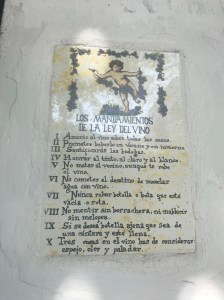 LOS MANDAMIENTOS
DE LA LEY DEL VINO
I Amarás al vino sobre todas las cosas.
II Prometes beberlo en verano y en invierno
III Santificarás las bodegas.
IV Honrar al tinto, al claro y al blanco.
V No matar al vecino, aunque te robe
el vino.
VI No cometas el desatino de mezclar
agua con vino.
VII Nunca robar botella o bota que esté
vacía o rota.
VIII No mentir sin borrachera, ni maldecir
sin
IX Si se desea botella ajena que sea de
una cántara y esté llena.
X Tres cosas en el vino has de considerar
espejo, olor y paladar.